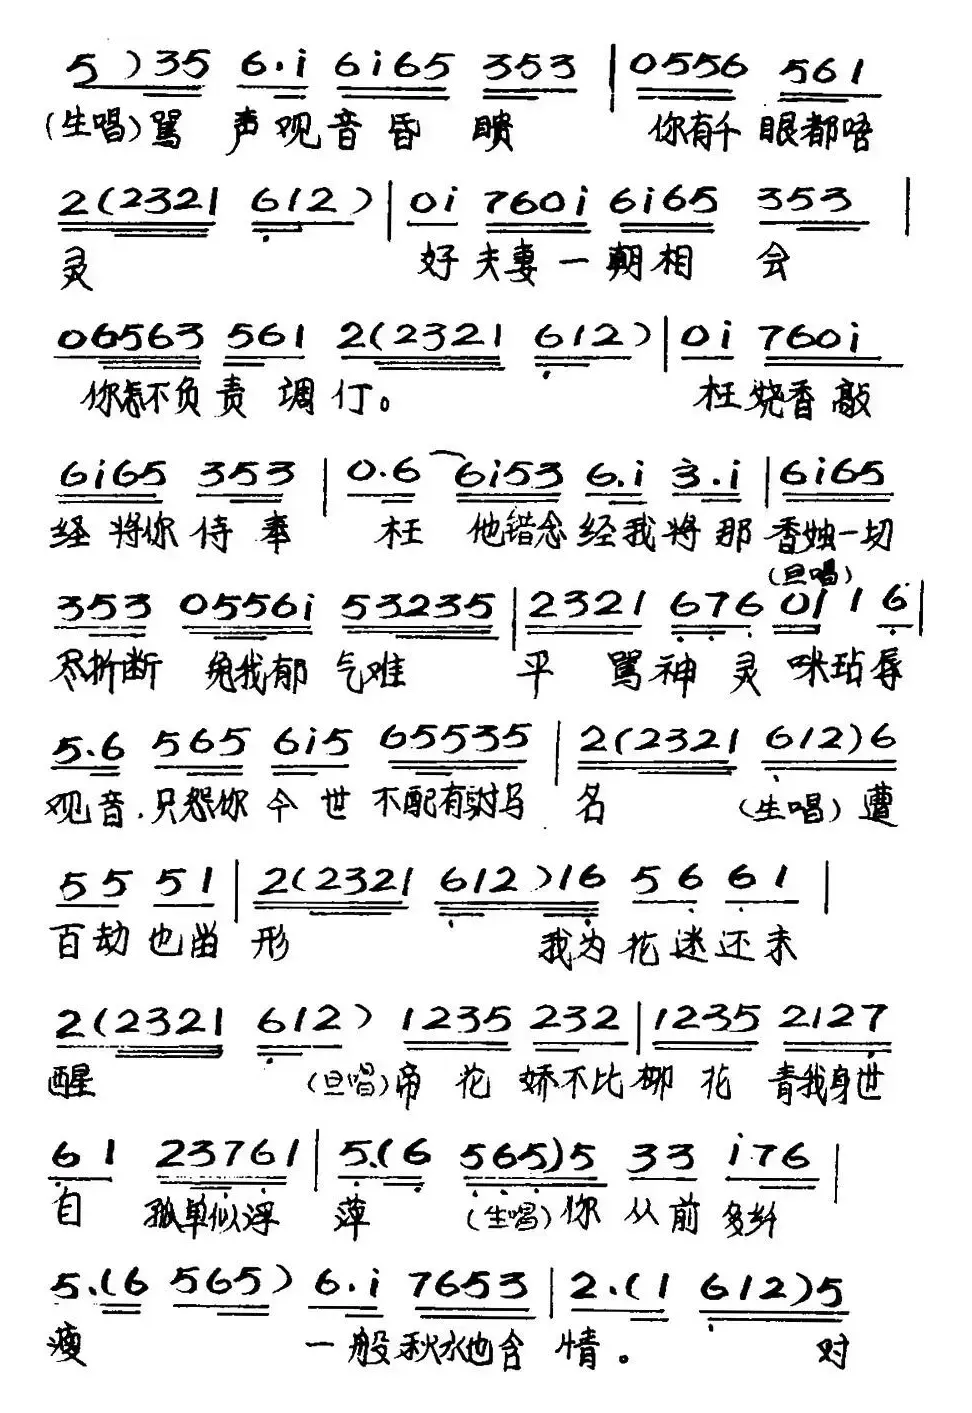 5 ) 35 6.i 6i65 353 | 05556 561
(生唱)骂 声观音昏 聩 你有千眼都唔
2(2321 612) | 0i 760i 6i65 353 |
灵 好夫妻一朝相 会
06563 561 2(2321 612) | 0i 760i
你怎不负责调停。 枉烧香敲
6i65 353 | 0.6 6i53 6.i 3.i | 6i65
经将你侍奉 枉 他错念经我将那香烛一切
(旦唱)
353 0556i 53235 | 2321 676 01 1 6 |
尽折断 免我郁气难 平 骂神灵咪玷辱
5.6 565 6i5 65535 | 2(2321 612)6
观音.只怨你今世不配有驸马 名 (生唱)遭
55 51 | 2(2321 612)16 56 61 |
百劫也当 形 我为花迷还未
2(2321 612) 1235 232 | 1235 2127
醒 (旦唱)帝花娇不比柳花 青我身世
61 23761 | 5.(6 565)5 33 i76 |
自 孤单似浮 萍 (生唱)你从前多纤
5.(6 565) 6.i 7653 | 2.(1 612)5
瘦 一般秋水也含情。 对